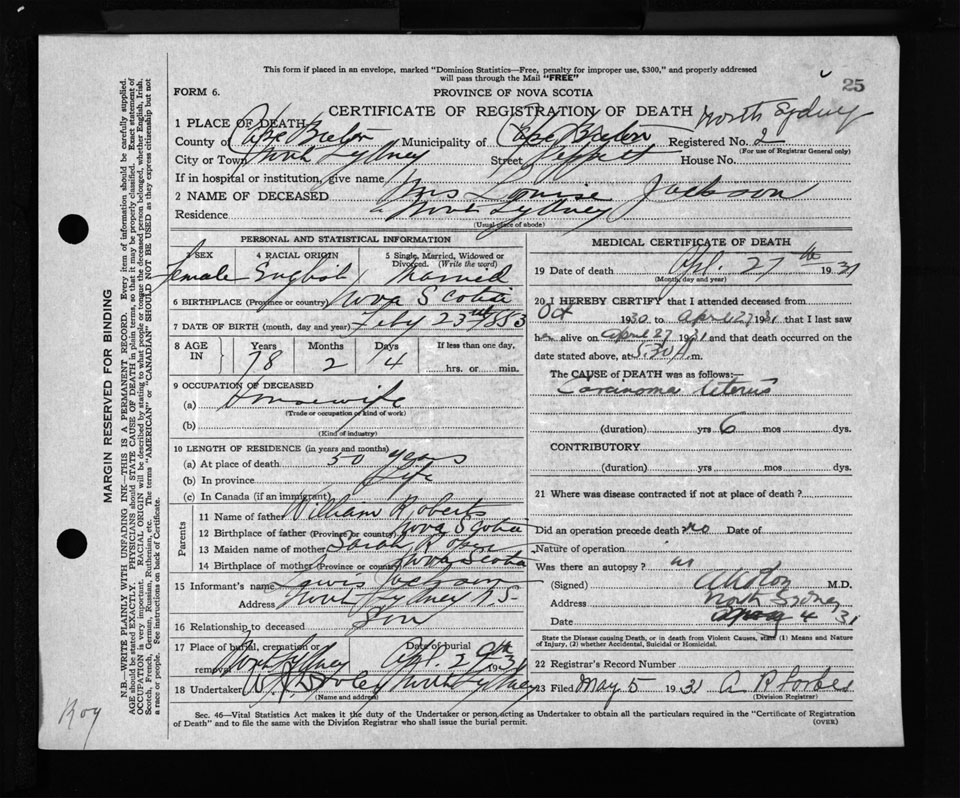 This form if placed in an envelope, marked "Dominion Statistics—Free, penalty for improper use, $300," and properly addressed
will pass through the Mail "FREE"
25
FORM 6.
PROVINCE OF NOVA SCOTIA
CERTIFICATE OF REGISTRATION OF DEATH North Sydney
1 PLACE OF DEATH
County of Cape Breton Municipality of Cape Breton Registered No. 2
(For use of Registrar General only)
City or Town North Sydney Street House No.
If in hospital or institution, give name
2 NAME OF DECEASED Mrs Louise Jackson
Residence North Sydney
(Usual place of abode)
PERSONAL AND STATISTICAL INFORMATION
3 SEX 4 RACIAL ORIGIN 5 Single, Married, Widowed or
Divorced. (Write the word)
Female English Married
6 BIRTHPLACE (Province or country) Nova Scotia
7 DATE OF BIRTH (month, day and year) Feby 23rd 1853
8 AGE IN Years Months Days If less than one day,
78 2 4 hrs. or min.
9 OCCUPATION OF DECEASED
(a) Housewife
(Trade or occupation or kind of work)
(b)
(Kind of industry)
10 LENGTH OF RESIDENCE (in years and months)
(a) At place of death 50 years
(b) In province Life
(c) In Canada (if an immigrant)
Parents
11 Name of father William Roberts
12 Birthplace of father (Province or country) Nova Scotia
13 Maiden name of mother Sarah
14 Birthplace of mother (Province or country) Nova Scotia
15 Informant's name Lewis Jackson
Address North Sydney N.S.
16 Relationship to deceased Son
17 Place of burial, cremation or Date of burial
removal North Sydney Apl. 29th 1931
18 Undertaker North Sydney
(Name and address)
MEDICAL CERTIFICATE OF DEATH
19 Date of death Apl. 27th 1931
(Month, day and year)
20 I HEREBY CERTIFY that I attended deceased from
Oct 1930 to April 27 1931 that I last saw
her alive on April 27 1931 and that death occurred on the
date stated above, at 5:30 A. m.
The CAUSE of DEATH was as follows:
Carcinoma Uterus
(duration) yrs 6 mos dys.
CONTRIBUTORY
(duration) yrs. mos dys.
21 Where was disease contracted if not at place of death?
Did an operation precede death? no Date of
Nature of operation
Was there an autopsy?
(Signed) M.D.
Address North Sydney
Date 4 31
State the Disease causing Death, or in death from Violent Causes, state (1) Means and Nature
of Injury, (2) whether Accidental, Suicidal or Homicidal.
22 Registrar's Record Number
23 Filed May 5 1931 A P Forbes
(Division Registrar)
Sec. 46—Vital Statistics Act makes it the duty of the Undertaker or person acting as Undertaker to obtain all the particulars required in the "Certificate of Registration
of Death" and to file the same with the Division Registrar who shall issue the burial permit.
(OVER)
MARGIN RESERVED FOR BINDING
N.B.—WRITE PLAINLY WITH UNFADING INK—THIS IS A PERMANENT RECORD. Every item of information should be carefully supplied.
AGE should be stated EXACTLY. PHYSICIANS should STATE CAUSE OF DEATH in plain terms, so that it may be properly classified. Exact statement of
OCCUPATION is very important. RACIAL ORIGIN will be described by stating to what people or race the deceased person belonged, whether English, Irish,
Scotch, French, German, Russian, Ruthenian, etc. The terms "AMERICAN" or "CANADIAN" SHOULD NOT BE USED as they express citizenship but not
a race or people. See instructions on back of Certificate.